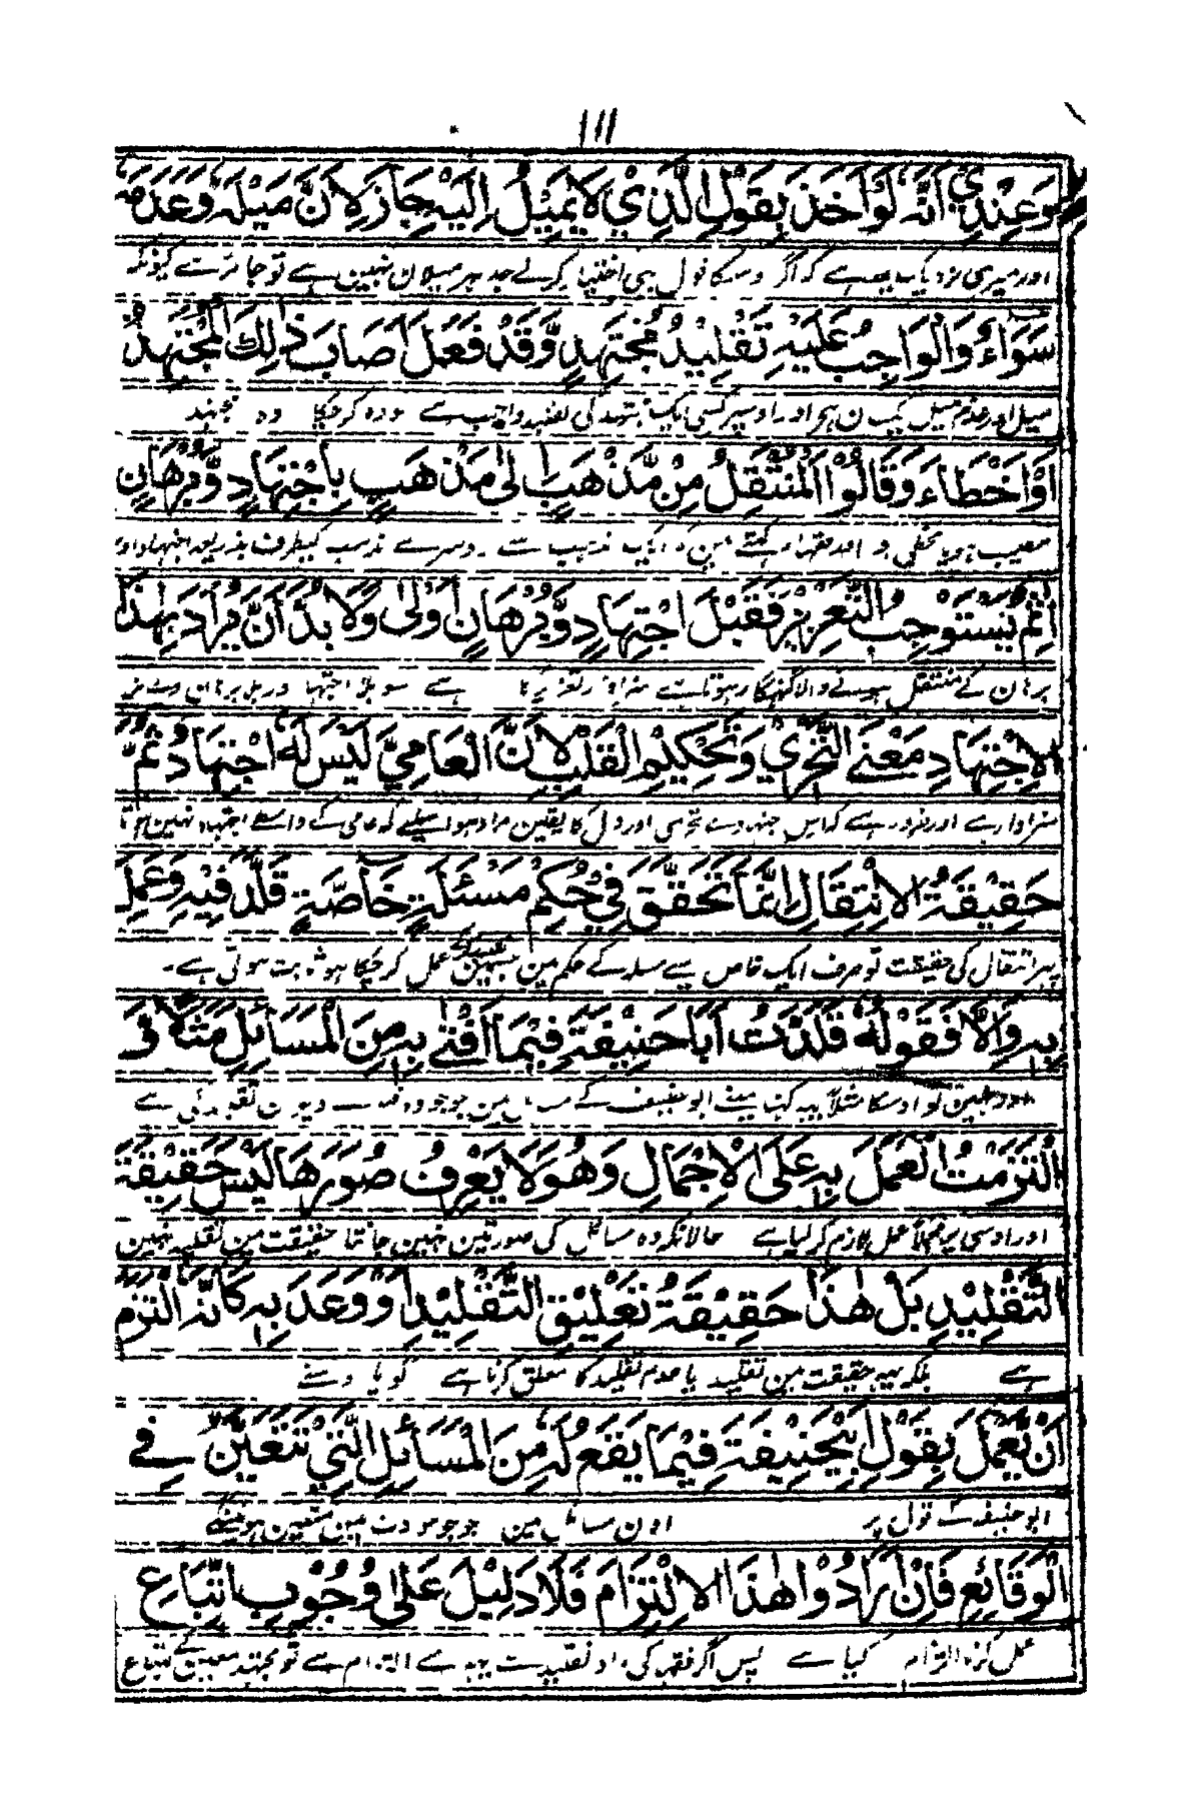 ۱۱۱
وَعِنْدِيْ اَنَّهٗ لَوْ اَخَذَ بِقَوْلِ الَّذِيْ لَا يَمِيْلُ اِلَيْهِ جَازَ لِاَنَّ مَيْلَهٗ وَعَدَمَهٗ
اور میری نزدیک یہ ہے کہ اگر اوسکا قول بہی اختیار کرلے جدہر میلان نہین ہے تو جائز ہے کیونکہ
سَوَاءٌ وَالْوَاجِبُ عَلَيْهِ تَقْلِيْدُ مُجْتَهِدٍ وَّقَدْ فَعَلَ اَصَابَ ذٰلِكَ الْمُجْتَهِدُ
میل اور عدم میل یکسان ہی اور اوسپر کسی ایک مجتہد کی تقلید واجب ہے سو وہ کر چکا وہ مجتہد
اَوْ اَخْطَاءَ وَقَالُوْا الْمُنْتَقِلُ مِنْ مَّذْهَبٍ اِلٰى مَذْهَبٍ بِاجْتِهَادٍ وَّبُرْهَانٍ
مصیب ہو یا مخطی اور فقہا کہتے ہین کہ ایک مذہب سے دوسرے مذہب کیطرف بذریعہ اجتہاد اور
اٰثِمٌ يَسْتَوْجِبُ التَّعْزِيْرَ فَقَبْلَ اجْتِهَادٍ وَّبُرْهَانٍ اَوْلٰى وَلَا بُدَّ اَنْ يُّرَادَ بِهٰذَا
برہان کے منتقل ہونے والا گنہگار ہوتا ہے سزاوار تعزیر کا ہے سو بلا اجتہاد اور بلا برہان
الْاِجْتِهَادِ مَعْنَى التَّحَرِّيْ وَتَحْكِيْمِ الْقَلْبِ لِاَنَّ الْعَامِيَّ لَيْسَ لَهُ اجْتِهَادٌ ثُمَّ
سزاوار ہے اور ضرور ہے کہ اس اجتہاد سے تحری اور دل کا یقین مراد ہو اسلیے کہ عامی کے واسطے اجتہاد نہین ہوتا
حَقِيْقَةُ الْاِنْتِقَالِ اِنَّمَا تَحَقَّقَ فِيْ حُكْمِ مَسْئَلَةٍ خَاصَّةٍ قَلَّدَ فِيْهِ وَعَمِلَ
پہر انتقال کی حقیقت تو صرف ایک خاص مسئلہ کے حکم مین جسمین تقلید کرکے عمل کر چکا ہو ثابت ہوتی ہے۔
بِهٖ وَاِلَّا فَقَوْلُهٗ قَلَّدْتُ اَبَا حَنِيْفَةَ فِيْمَا اَفْتٰى بِهٖ مِنَ الْمَسَائِلِ مَثَلًا وَ
اور نہین تو اوسکا مثلاً یہہ کہنا مینے ابو حنیفہ کے مسائل مین جو جو وہ فتوی دیوین تقلید کی ہے
الْتَزَمْتُ الْعَمَلَ بِهٖ عَلَى الْاِجْمَالِ وَهُوَ لَا يَعْرِفُ صُوَرَهَا لَيْسَ حَقِيْقَةَ
اور اوسی پر مجملاً عمل لازم کر لیا ہے حالانکہ وہ مسائل کی صورتین نہین جانتا حقیقت مین تقلید نہین
التَّقْلِيْدِ بَلْ هٰذَا حَقِيْقَةُ تَعْلِيْقِ التَّقْلِيْدِ اَوْ وَعَدَ بِهٖ كَاَنَّهُ الْتَزَمَ
ہے بلکہ یہہ حقیقت مین تقلید یا عدم تقلید کا معلق کرنا ہے گویا اوسنے
اَنْ يَّعْمَلَ بِقَوْلِ اَبِيْحَنِيْفَةَ فِيْمَا يَقَعُ لَهٗ مِنَ الْمَسَائِلِ الَّتِيْ تَتَعَيَّنُ فِي
ابو حنیفہ کے قول پر اون مسائل مین جو جو حوادث مین متعین ہونگے
الْوَقَائِعِ فَاِنْ اَرَادُوْا هٰذَا الْاِلْتِزَامَ فَلَا دَلِيْلَ عَلٰى وُجُوْبِ اتِّبَاعِ
عمل کرنا التزام کیا ہے پس اگر فقہا کی مراد تقلید سے یہہ ہے التزام ہے تو مجتہد معین کے اتباع